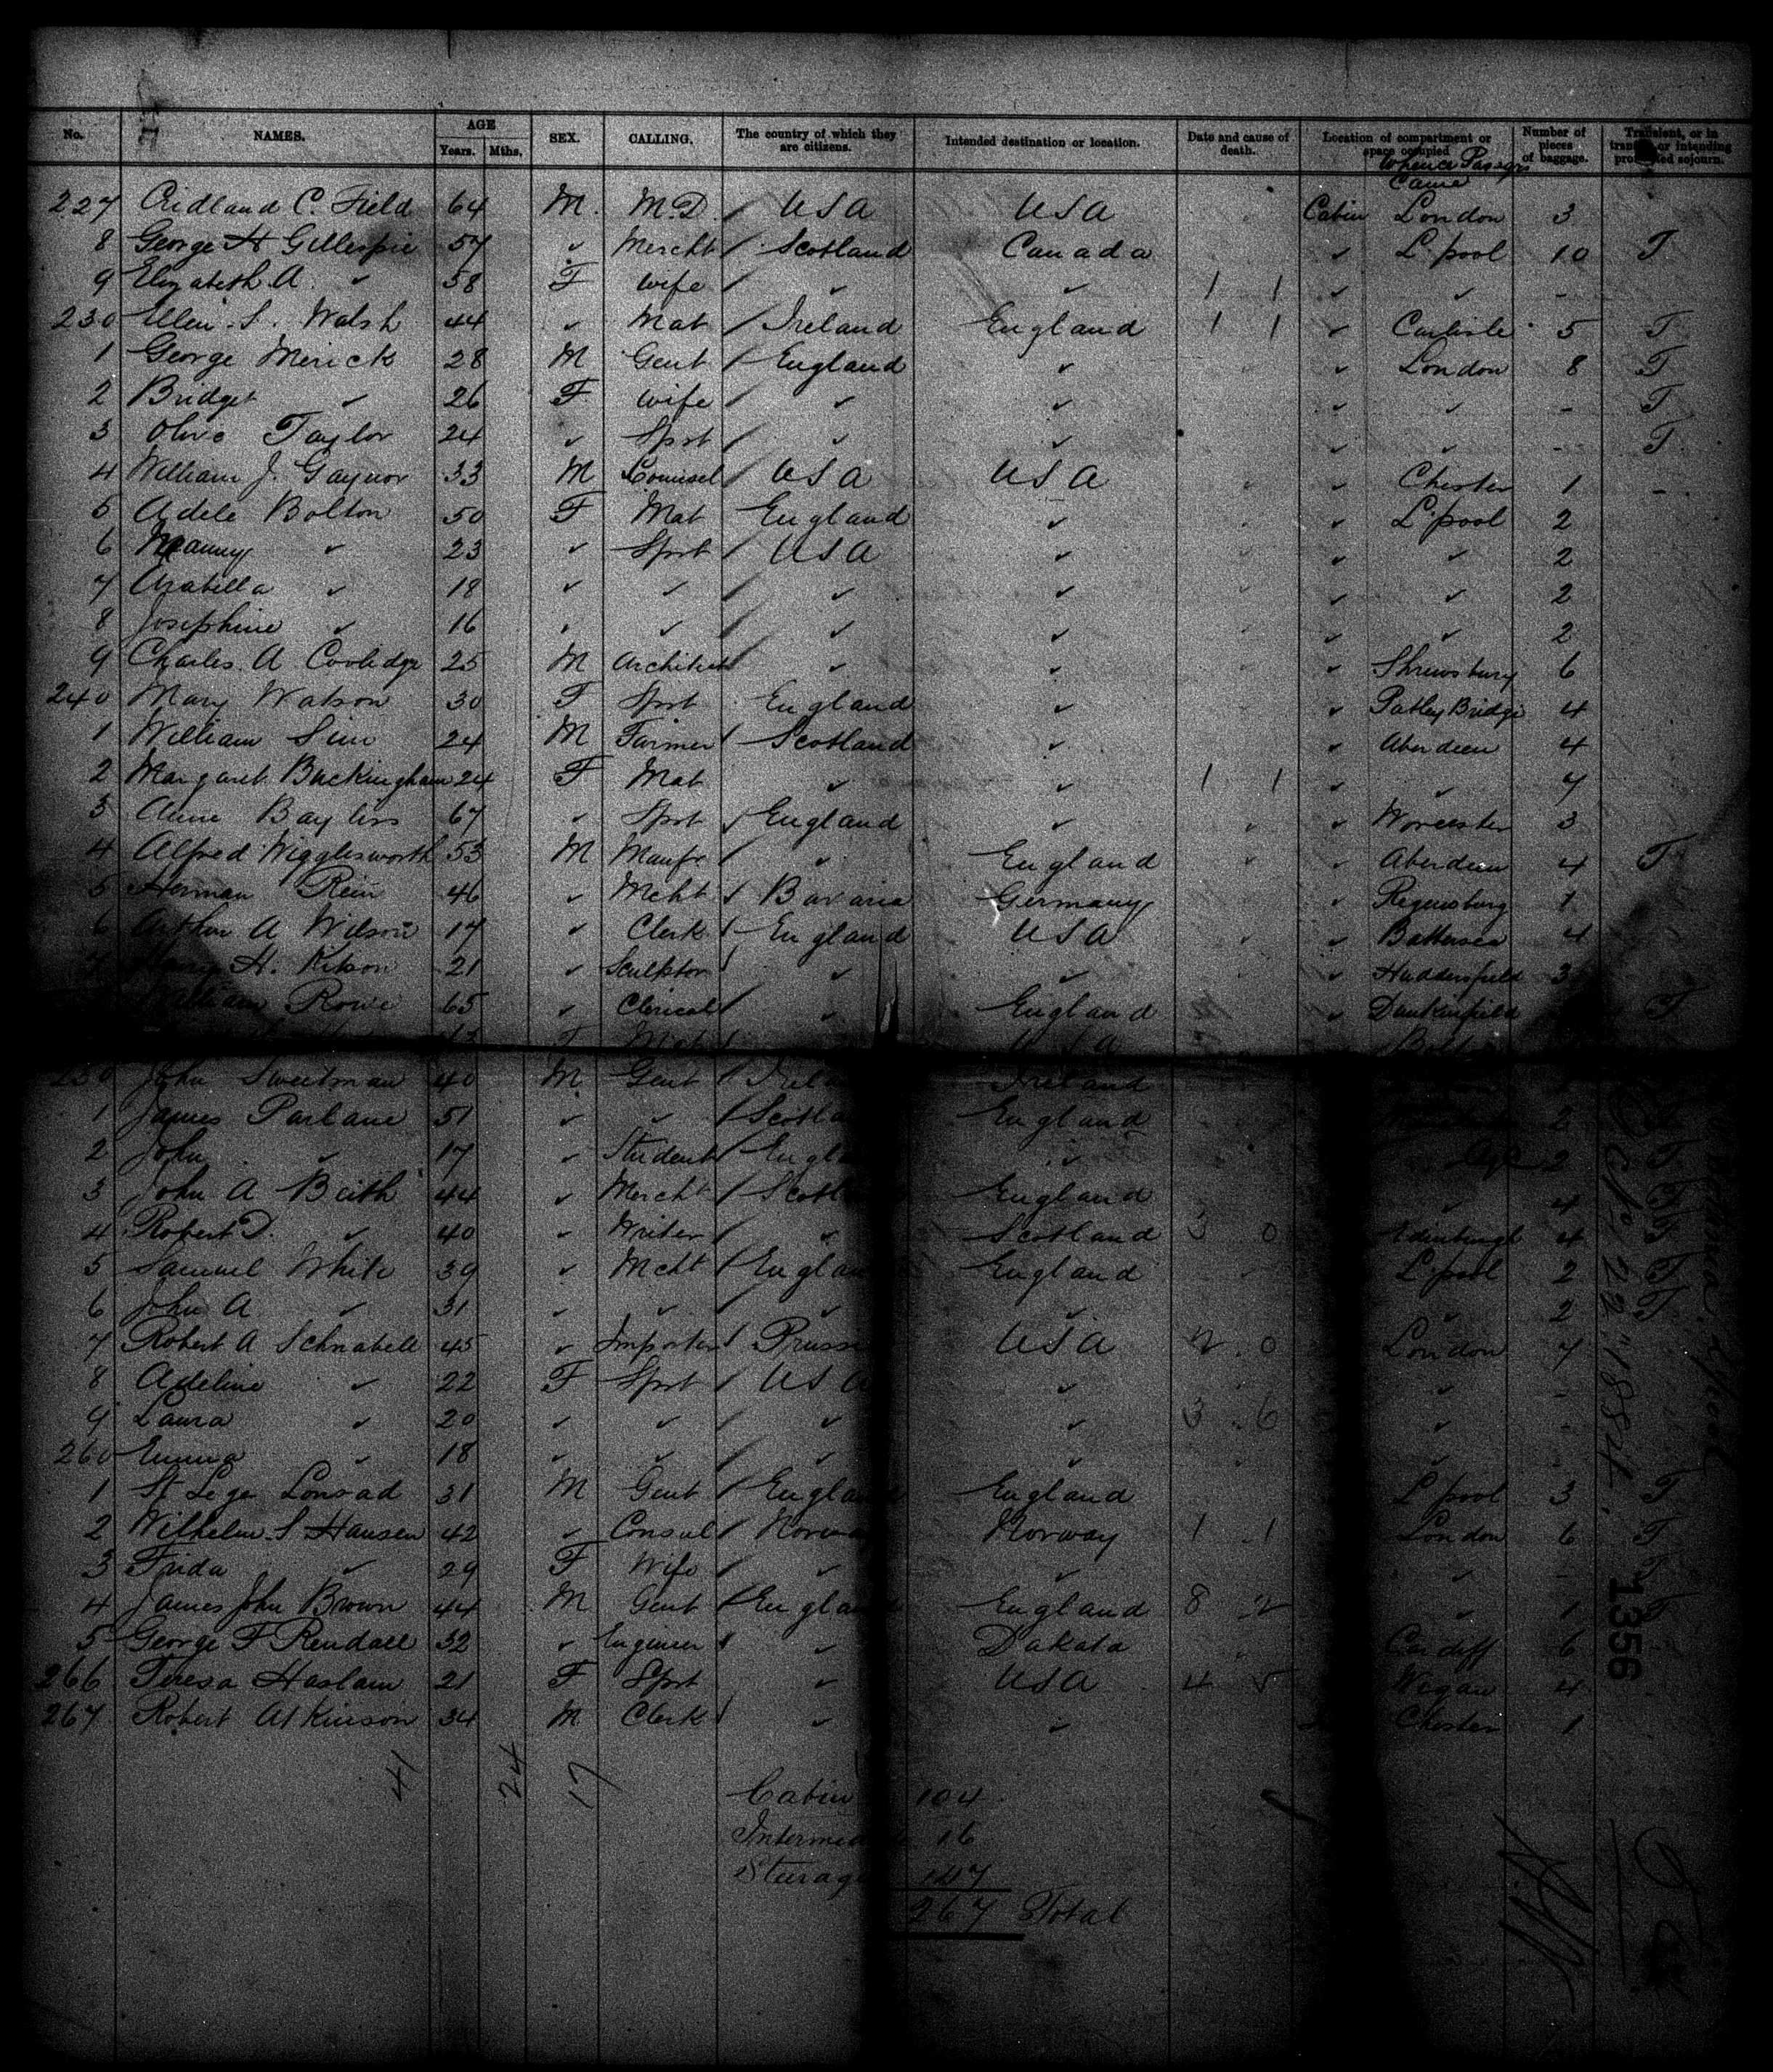 No. NAMES. AGE Years. Mths. SEX. CALLING. The country of which they are citizens. Intended destination or location. Date and cause of death. Location of compartment or space occupied Number of pieces of baggage. Transient, or in transit, or intending protracted sojourn.
Whence Passgrs Came
227 C. Field 64 M. M.D. / USA USA Cabin London 3
8 George H Gillespie 57 " Mercht / Scotland Canada " L'pool 10 T
9 Elizabeth A. " 58 F Wife / " " 1 1 " " -
230 Ellen S. Walsh 44 " Mat / Ireland England 1 1 " Carlisle 5 T
1 George Merick 28 M Gent / England " " London 8 T
2 Bridget " 26 F Wife / " " " " - T
3 Olive Taylor 24 " Spst / " " " " - T
4 William J. Gaynor 33 M Counsel / USA USA " Chester 1 -
5 Adele Bolton 50 F Mat England " " L'pool 2
6 " 23 " Spst / USA " " " 2
7 Arabella " 18 " " / " " " " 2
8 Josephine " 16 " " / " " " " 2
9 Charles A Coolidge 25 M Architect " " " Shrewsbury 6
240 Mary Watson 30 F Spst England " " Patley Bridge 4
1 William Sim 24 M Farmer / Scotland " " Aberdeen 4
2 Margaret Buckingham 24 F Mat " " 1 1 " " 7
3 Anne Bayliss 67 " Spst / England " " Worcester 3
4 Alfred Wigglesworth 53 M Manfr / " England " Aberdeen 4 T
5 Herman Rein 46 " Mcht / Bavaria Germany " Regensburg 1
6 Arthur A Wilson 17 " Clerk / England USA " Battersea 4
H. Kitson 21 " Sculptor / " " " Huddersfield 3
William Rowe 65 " Clerical / " England " Dunkinfield T
F Mat USA
250 John Sweetman 40 M Gent / Irela Ireland
1 James Parlane 51 " " / Scotla England 2
2 John " 17 " Student / Engla " 2 T
3 John A Beith 44 " Mercht / Scotla England " 4 T
4 Robert D. " 40 " Writer / " Scotland 3 0 Edinburgh 4 T
5 Samuel White 39 " Mcht / Englan England L'pool 2 T
6 John A " 31 " " / " " " 2 T
7 Robert A Schnabell 45 " Importer / Pruss USA 2 0 London 7
8 Adeline " 22 F Spst / USA " " -
9 Laura " 20 " " / " " 3 6 " -
260 Emma " 18 " " / " " "
1 St Leger 31 M Gent / Engla England L'pool 3 T
2 Wilhelm S Hansen 42 " Consul / Norwa Norway 1 1 London 6 T
3 Frida " 29 F Wife / " " " - T
4 James John Brown 44 M Gent / Engla England 8 2 " 1 T
5 George F Rendall 32 " Engineer / " Dakata Cardiff 6 -
266 Teresa Haslam 21 F Spst " USA 4 5 Wigan 4
267 Robert Atkinson 34 M Clerk / " " Chester 1
1884.
1356
41 24 17
Cabin 104
Intermed 16
Sturag 147
267 Total